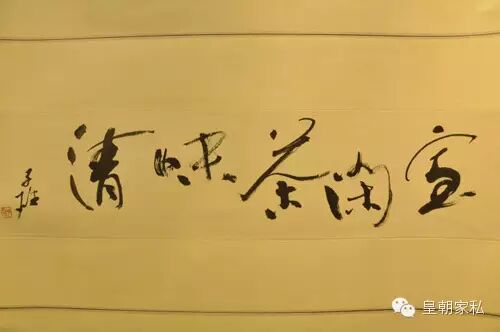 室闲茶味清
皇朝家私